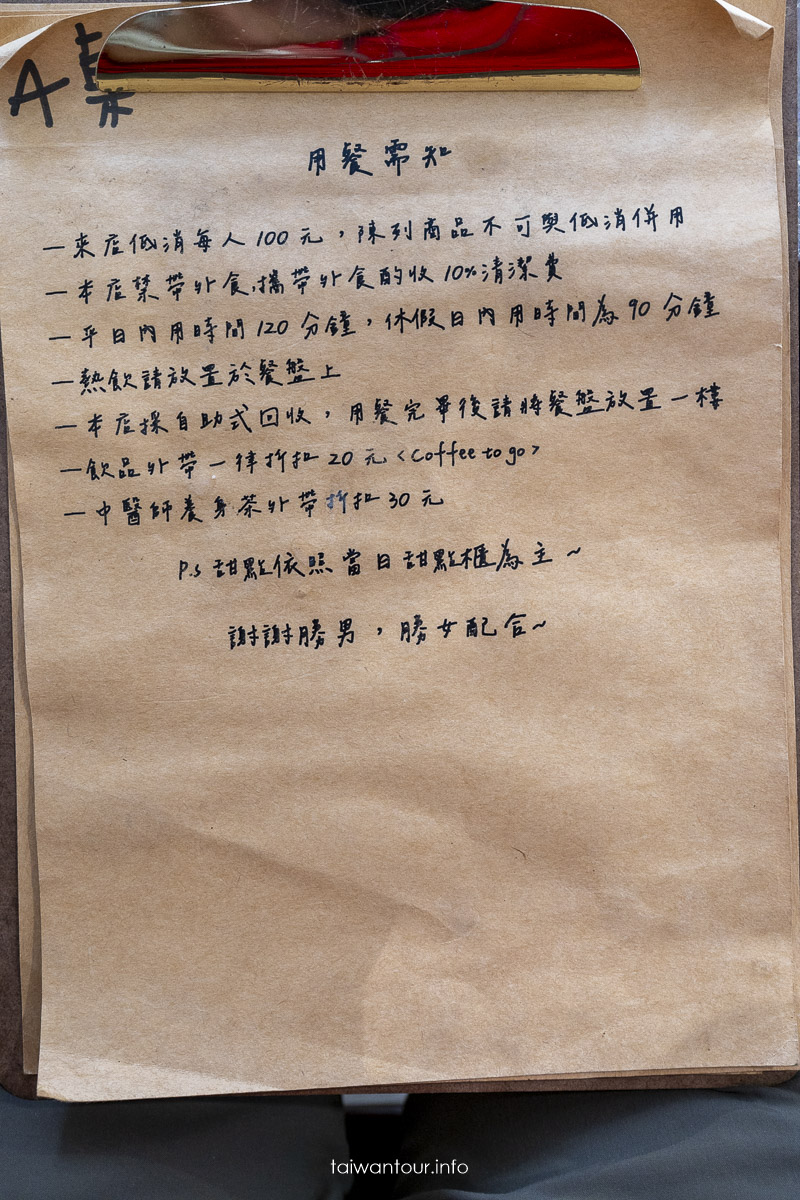 A桌
用餐需知
一來店低消每人100元，陳列商品不可與低消併用
一本店禁帶外食,攜帶外食酌收10%清潔費
一平日內用時間120分鐘，休假日內用時間為90分鐘
一熱飲請放置於餐盤上
一本店採自助式回收，用餐完畢後請將餐盤放置一樓
一飲品外帶一律折扣20元<Coffee to go>
一中醫師養身茶外帶折扣30元
P.s 甜點依照當日甜點櫃為主~
謝謝勝男，勝女配合~
taiwantour.info